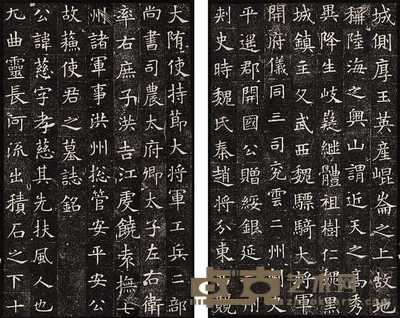 大隋使持節大將軍工兵二部
尚書司農太府卿太子左右衛
率右庶子洪吉江虔饒袁撫七
州諸軍事洪州捴管安平安公
故蘇使君之墓誌銘
公諱慈字孝慈其先扶風人也
九曲靈長河流出積石之下十
城側厚玉英產崐崘之上故地
稱陸海之奧山謂近天之高秀
異降生岐嶷繼體祖樹仁魏黑
城鎮主父武西魏驃騎大將軍
開府儀同三司兗雲二州
平遙郡開國公贈綏銀延
刾史時魏氏秦趙將分東競